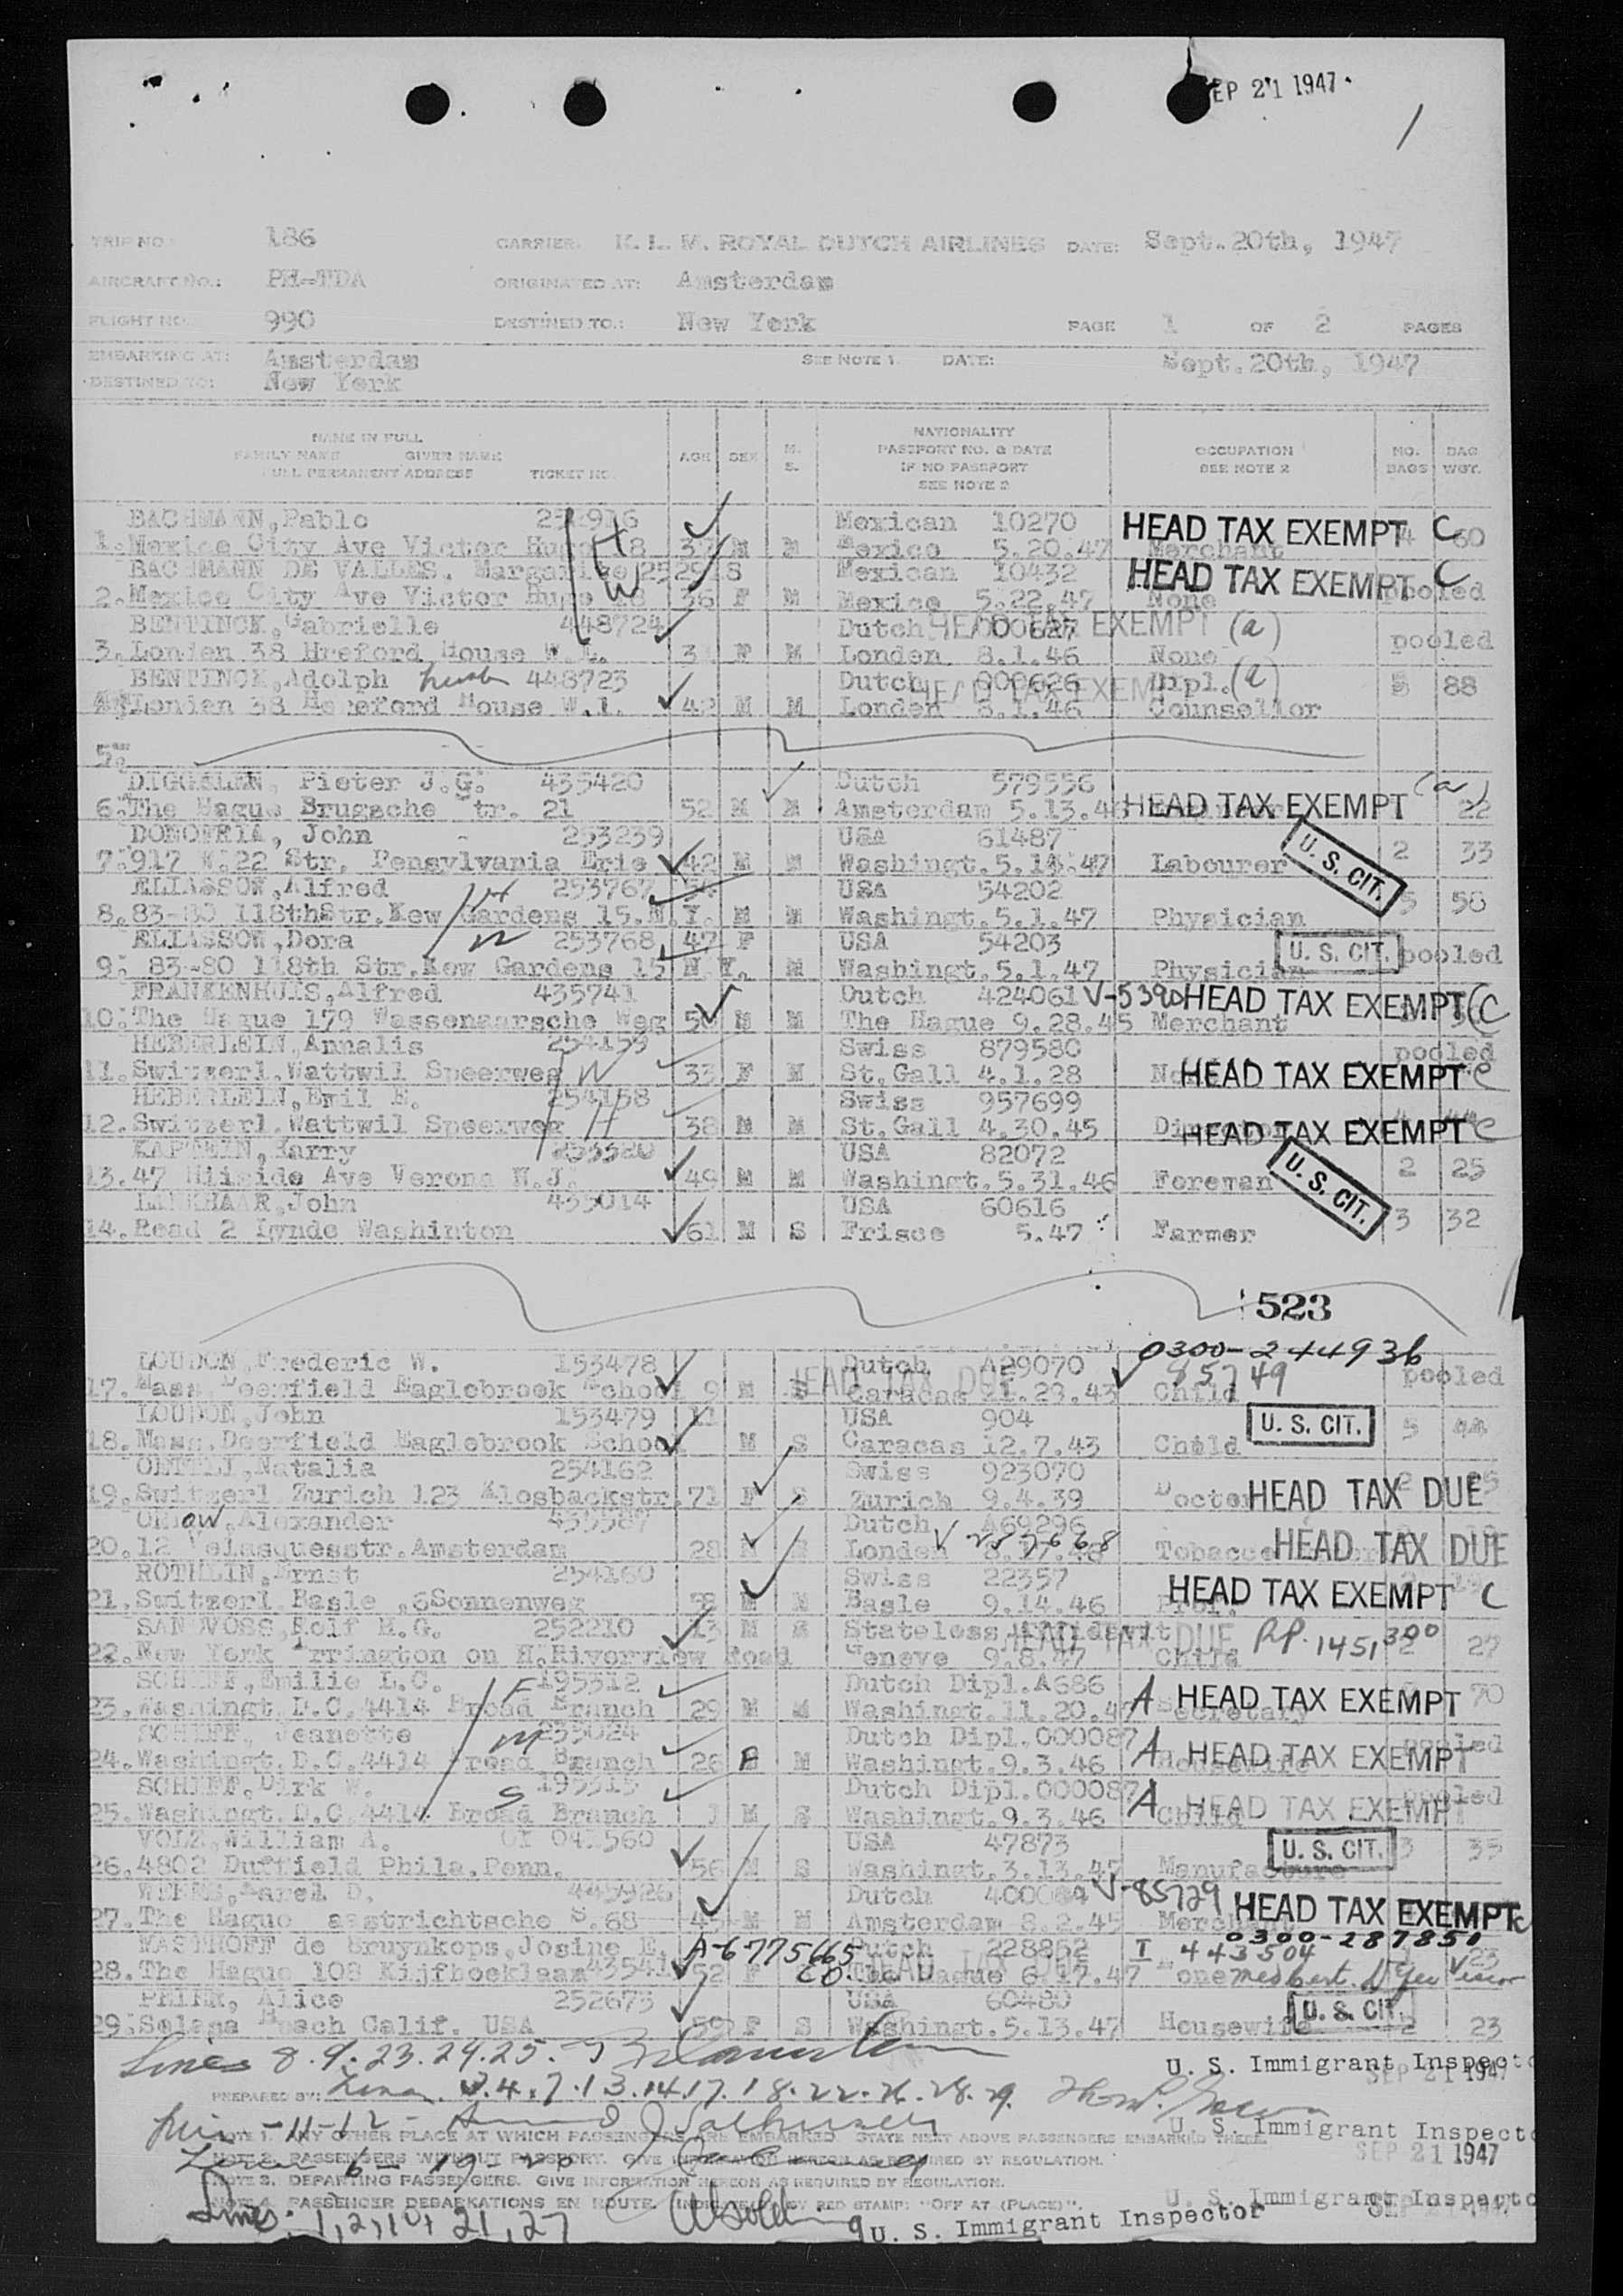 SEP 21 1947
1
TRIP NO.: 186 CARRIER: K. L. M. ROYAL DUTCH AIRLINES DATE: Sept.20th, 1947
AIRCRAFT NO.: PH-TDA ORIGINATED AT: Amsterdam
FLIGHT NO. 990 DESTINED TO.: New York PAGE 1 OF 2 PAGES
EMBARKING AT: Amsterdam SEE NOTE 1. DATE: Sept.20th, 1947
DESTINED TO: New York
NAME IN FULL
FAMILY NAME GIVEN NAME
FULL PERMANENT ADDRESS TICKET NO.
AGE SEX M. S.
NATIONALITY
PASSPORT NO. & DATE
IF NO PASSPORT
SEE NOTE 2
OCCUPATION
SEE NOTE 2
NO. BAGS
BAG WGT.
BACHMANN,Pablo Mexican 10270 HEAD TAX EXEMPT C
1.Mexico City Ave Victor Hugo 18 H M M Mexico 5.20.47 Merchant 4 60
BACHMANN DE VALLES. Mexican 10432 HEAD TAX EXEMPT C
2.Mexico City Ave Victor Hugo 18 W 36 F M Mexico 5.22.47 None pooled
BENTINCK,Gabrielle 448724 Dutch 000627 HEAD TAX EXEMPT (a)
3.Londen 38 Hreford House W.1. F M Londen 8.1.46 None pooled
BENTINCK,Adolph husb 448723 Dutch 000626 HEAD TAX EXEMPT Dipl.(a)
Londen 38 Hereford House W.1. 42 M M Londen 8.1.46 Counsellor 88
5.
Pieter J.G. 435420 Dutch 579556 (a)
6.The Hague Brugsche Str. 21 52 M M Amsterdam 5.13.46 HEAD TAX EXEMPT 22
John 253239 USA 61487
7.917 W.22 Str, Pensylvania Erie 42 M M Washingt.5.14.47 Labourer U. S. CIT. 2 33
ELIASSOW,Alfred 253767 54 USA 54202
8.83-80 118thStr.Kew Gardens 15.N.Y. H M M Washingt.5.1.47 Physician 5 58
ELIASSOW,Dora W 253768 47 F USA 54203 U. S. CIT.
9. 83-80 118th Str.Kew Gardens 15 N.Y. M Washingt.5.1.47 Physician pooled
FRANKENHUIS,Alfred 435741 Dutch 424061 V-5390 HEAD TAX EXEMPT C
10.The Hague 179 Wassenaarsche Weg M M The Hague 9.28.45 Merchant
HEBERLEIN,Annalis 254159 Swiss 879580 pooled
11.Switzerl.Wattwil Speerweg W 33 F M St.Gall 4.1.28 HEAD TAX EXEMPT C
HEBERLEIN,Emil E. 254158 Swiss 957699
12.Switzerl.Wattwil Speerweg H 38 M M St.Gall 4.30.45 HEAD TAX EXEMPT C
KAPTEIN,Harry USA 82072
13.47 Hillside Ave Verona N.J. 49 M M Washingt.5.31.46 Foreman U. S. CIT. 2 25
LANKHAAR,John 435014 USA 60616
14.Road 2 Lynde Washinton 61 M S Frisco 5.47 Farmer 3 32
523
0300-244936
LOUDON,Frederic W. 153478 Dutch A29070 85749
17.Mass.Deerfield Eaglebrook School 9 M S HEAD TAX DUE Caracas 11.23.43 Child pooled
LOUDON,John 153479 11 USA 904
18.Mass.Deerfield Eaglebrook School M S Caracas 12.7.43 Child U. S. CIT. 5 44
OETTLI,Natalia 254162 Swiss 923070
19.Switzerl Zurich 123 Klosbackstr. 71 F S Zurich 9.4.39 Doctor HEAD TAX DUE
Alexander Dutch A69296
20.12 Velasquesstr.Amsterdam 28 Londen Tobacco HEAD TAX DUE
ROTHLIN,Ernst 254160 Swiss 22357
21.Switzerl.Basle ,6Sonnenweg M Basle 9.14.46 Prof. HEAD TAX EXEMPT C
SANDVOSS,Rolf H.G. 252210 13 M S Stateless Affidavit HEAD TAX DUE
22.New York Irrington on H.Riverview Road Geneve 9.8.47 Child RP. 1451300 2 27
SCHIFF,Emilie L.C. F 195312 Dutch Dipl.A686
23.Washingt.D.C.4414 Broad Branch 29 M M Washingt.11.20.47 Secretary A HEAD TAX EXEMPT 70
SCHIFF, Jeanette M 253024 Dutch Dipl.000087
24.Washingt.D.C.4414 Broad Branch 26 F M Washingt.9.3.46 Housewife A HEAD TAX EXEMPT pooled
SCHIFF,Dirk W. S 195313 Dutch Dipl.000087
25.Washingt.D.C.4414 Broad Branch M S Washingt.9.3.46 Child A HEAD TAX EXEMPT pooled
VOLZ,William A. USA 47873
26.4802 Duffield Phila.Penn. 56 M S Washingt.3.13.47 Manufacture U. S. CIT. 3 35
Karel D. Dutch V-85729
27.The Hague 68 45 M M Amsterdam 8.2.45 Merchant HEAD TAX EXEMPT C
de Bruynkops,Josine E. A-6775665 Dutch 228852 I 443504 0300-287850
28.The Hague 108 52 F The Hague 6.17.47 HEAD TAX DUE None 23
Alice 252673 USA 60480
29.Solana Beach Calif. USA 59 F S Washingt.5.13.47 Housewife U. S. CIT. 2 23
Lines 8.9.23.24.25.
U. S. Immigrant Inspector
SEP 21 1947
PREPARED BY: 3.4.7.13.14.17.18.22.26.28.29.
-11-12-
U. S. Immigrant Inspector
NOTE 1. ANY OTHER PLACE AT WHICH PASSENGERS ARE EMBARKED. STATE NEXT ABOVE PASSENGERS EMBARKED THERE.
NOTE 2. PASSENGERS WITHOUT PASSPORT. GIVE INFORMATION HEREON AS REQUIRED BY REGULATION.
SEP 21 1947
6-19-20
NOTE 3. DEPARTING PASSENGERS. GIVE INFORMATION HEREON AS REQUIRED BY REGULATION.
NOTE 4. PASSENGER DEBARKATIONS EN ROUTE. INDICATE BY RED STAMP: "OFF AT (PLACE)".
U. S. Immigrant Inspector
Lines: 1,2,10,21,27
U. S. Immigrant Inspector